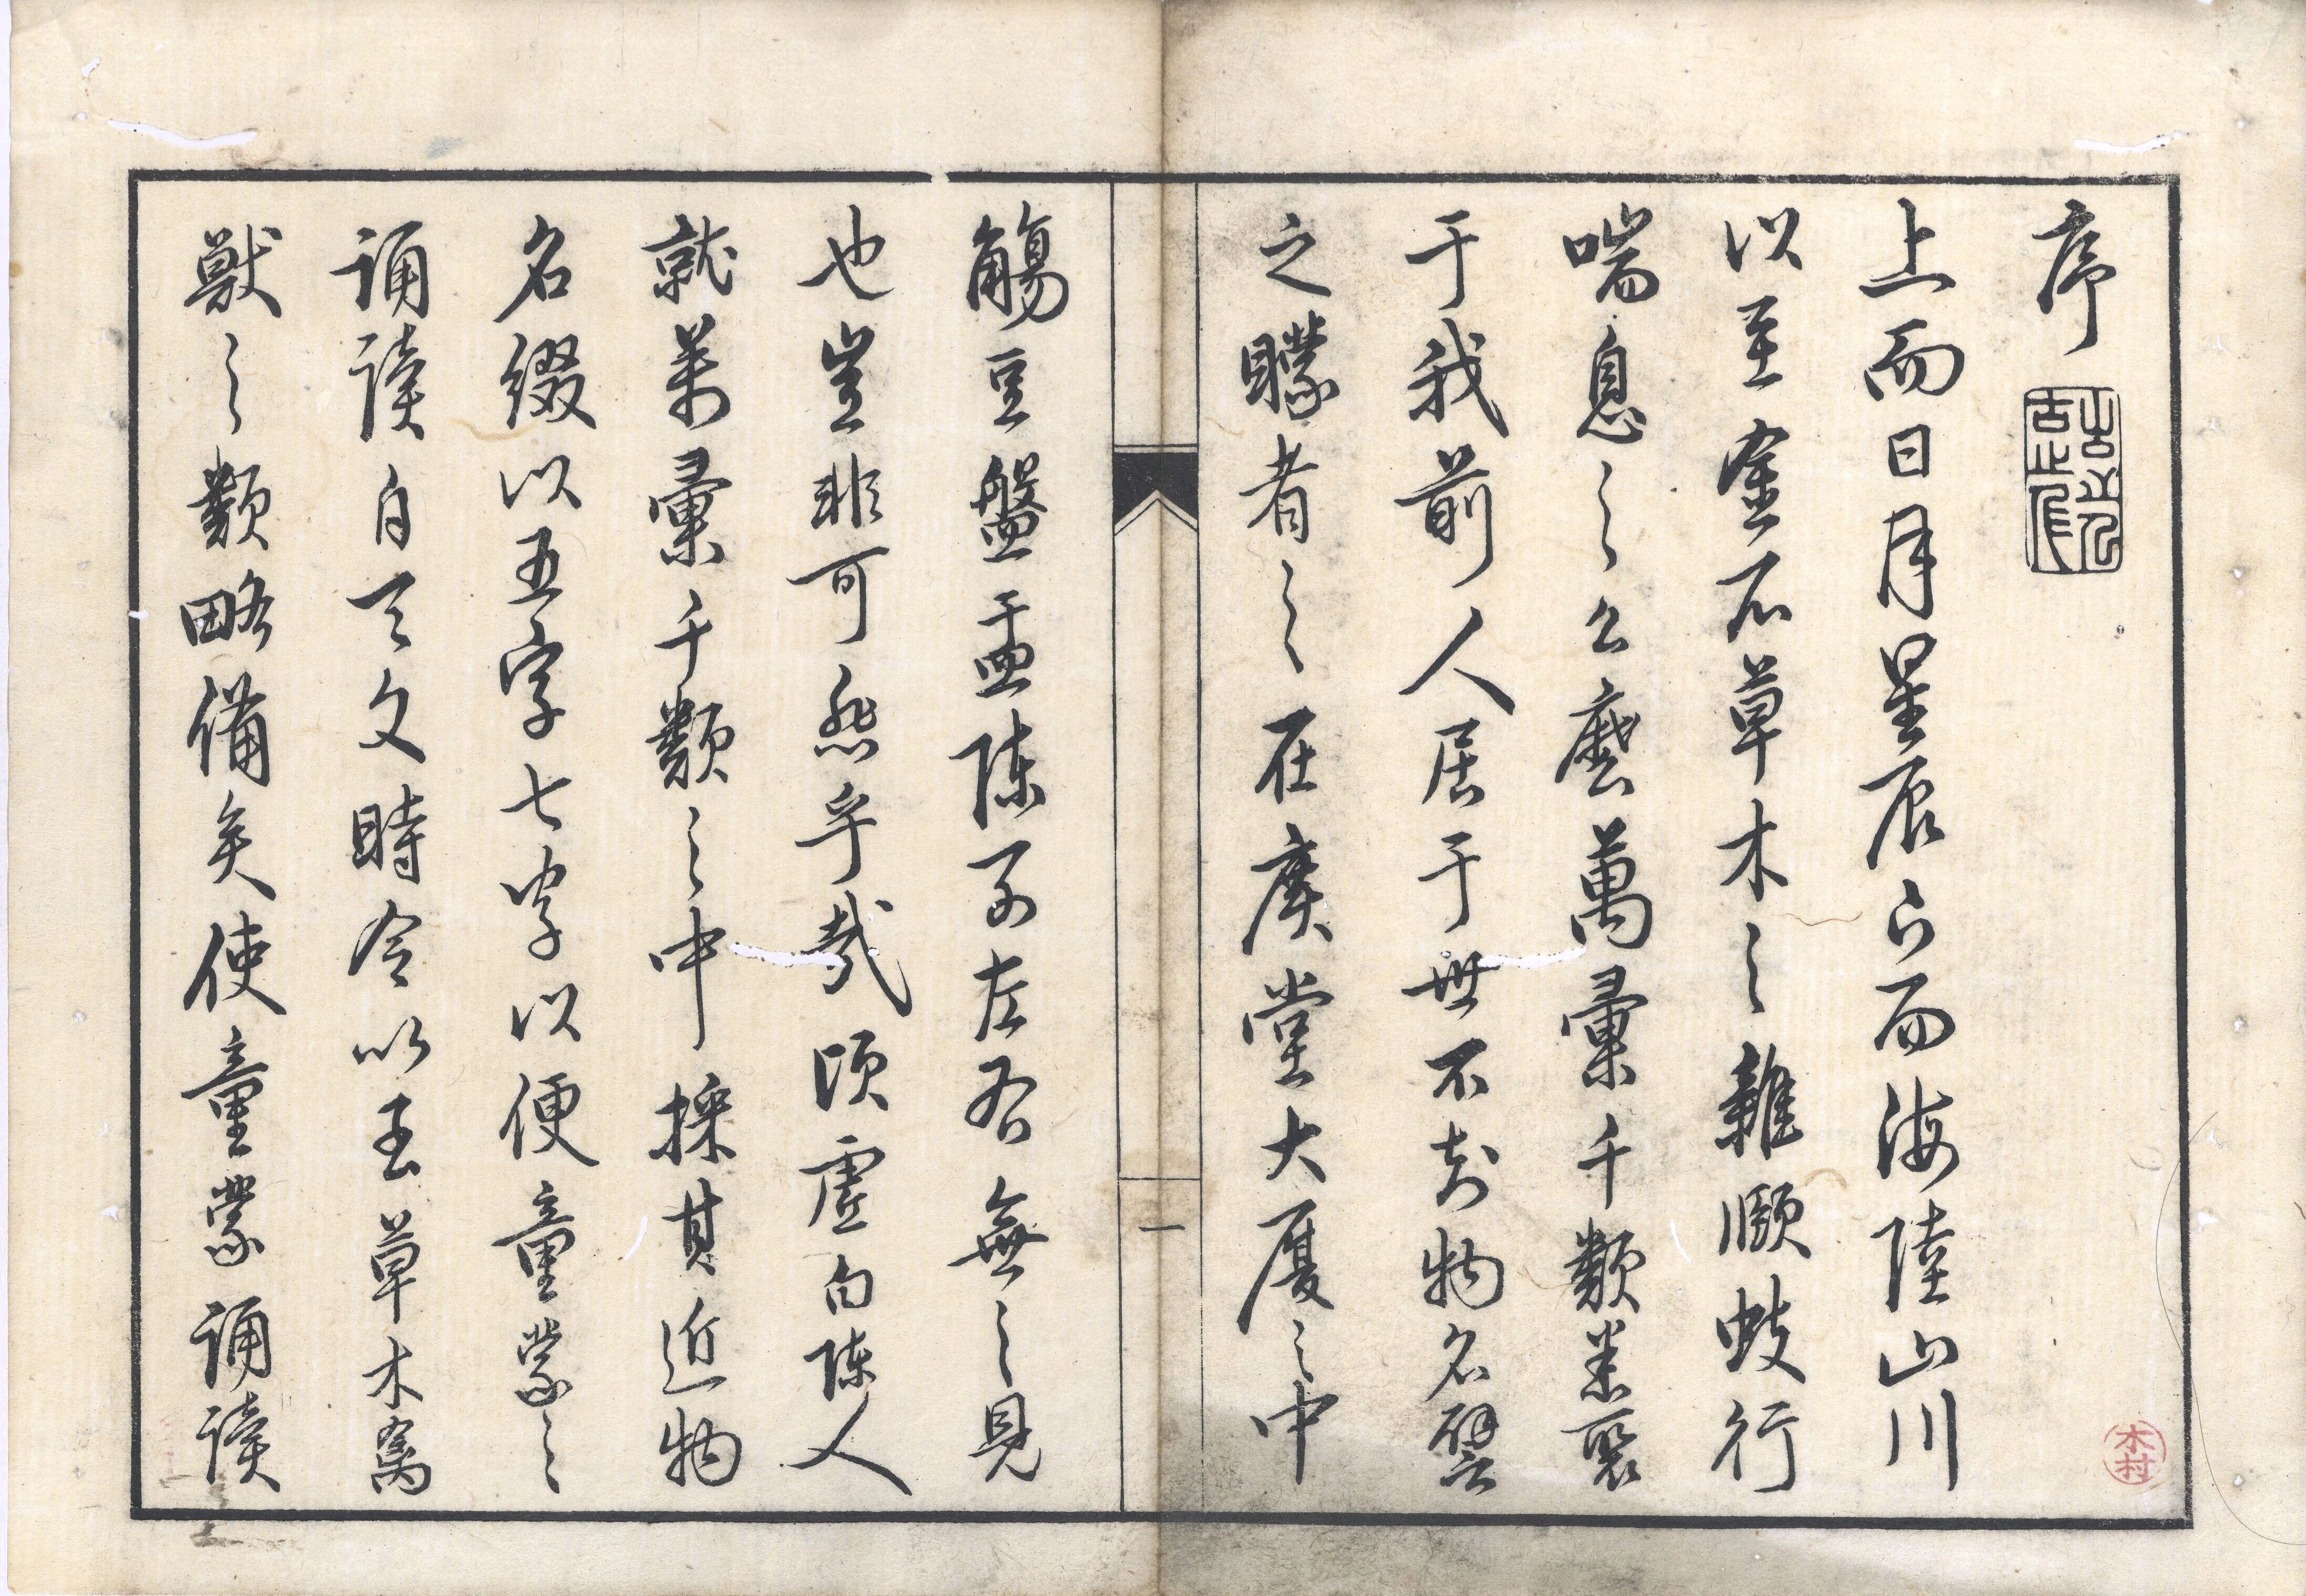 序
上而日月星辰下而海陸山川
以至金石草木之雜顧蚑行
喘息之么麼萬彙千類悉聚
于我前人居于世不知物名譬
之矇者之在廣堂大厦之中
觴豆盤盂陳于左右無之見
也豈非可愍乎哉頃虛白陳人
就萬彙千類之中採其近物
名綴以五字七字以便童蒙之
誦讀自天文時令以至草木禽
獸之類略備矣使童蒙誦讀
一
木村